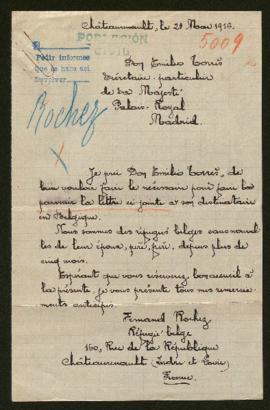 Châteaurenault, le 28 Mai 1916.
POBLACIÓN
CIVIL
5009
Pedir informes
Que se haga así
Devolver
Don Emilio Torrès
Secrétaire particulier
de Sa Majesté
Palais-Royal
Madrid.
Rochez
Je prie Don Emilio Torrès, de
bien vouloir faire le nécessaire pour faire
parvenir la lettre ci jointe à son destinataire
en Belgique.
Nous sommes des réfugiés belges sans nouvel-
les de leur époux, père, depuis plus de
cinq mois.
Espérant que vous réserverez bon accueil à
la présente, je vous présente tous mes remercie-
ments anticipés.
Fernand Rochez
Réfugié belge
160, Rue de la République
Châteaurenault (Indre et Loire)
France.